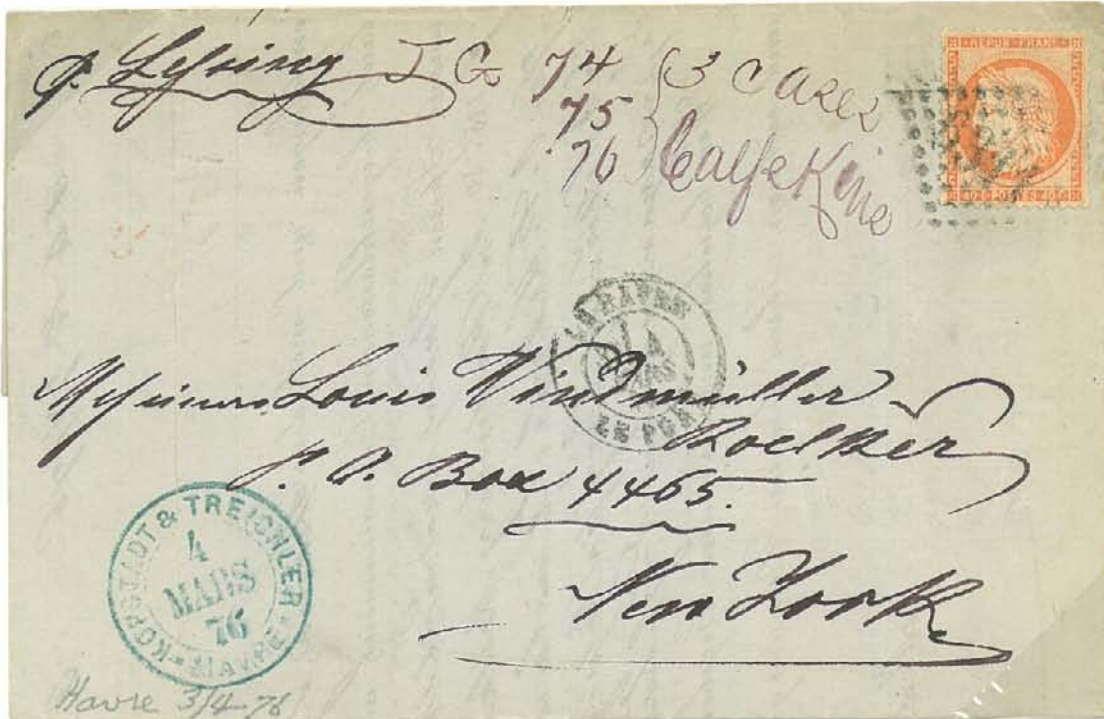 p. Lessing I G 74 { 3 cases
75
76 Calfskins
REPUB · FRANC ·
40 C POSTES 40 C
LE HAVRE
4
MARS
LE PORT
Messieurs Louis Windmüller
Roelker
P. O. Box 4465.
New York
KOPPSTADT & TREICHLER
4
MARS
76
HAVRE
Havre 3/4-76